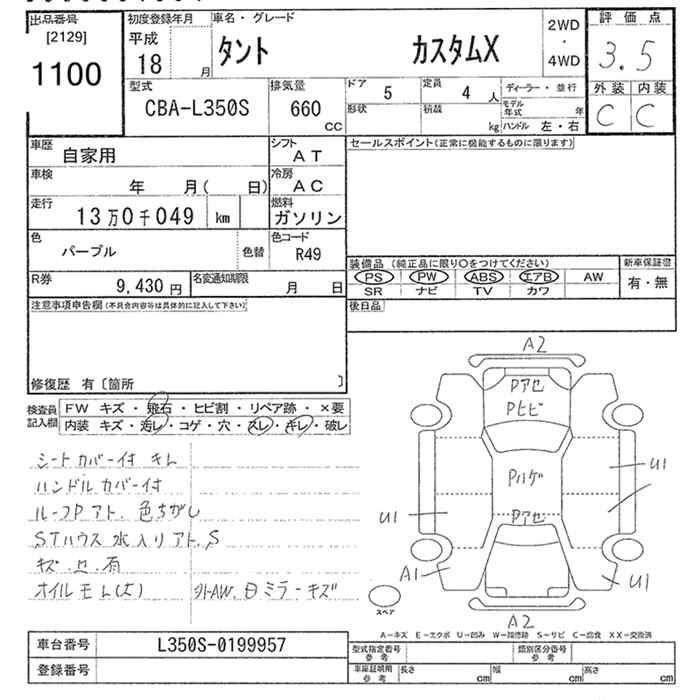 出品番号 初度登録年月 車名・グレード 評価点
[2129] 平成 2WD
1100 18 月 タント カスタムX ・ 3.5
4WD
型式 排気量 ドア 5 定員 4 人 ディーラー・並行 外装 内装
CBA-L350S 660 cc 形状 積載 kg モデル年式 年 C C
ハンドル 左・右
車歴 自家用 シフト AT セールスポイント(正常に機能するものに限ります)
車検 年 月( 日) 冷房 AC
走行 13万0千049 km 燃料 ガソリン
色 パープル 色替 色コード R49
装備品(純正品に限り○をつけてください) 新車保証書
R券 9,430円 名変通知期限 月 日 PS PW ABS エアB AW 有・無
SR ナビ TV カワ
注意事項申告欄(不具合内容等は具体的に記入して下さい) 後日品
修復歴 有〔箇所 〕
検査員記入欄 FW キズ・飛石・ヒビ割・リペア跡・×要
内装 キズ・汚レ・コゲ・穴・スレ・キレ・破レ
シートカバー付 キレ
ハンドルカバー付
ルーフPアト、色ちがい
STハウス 水入りアト、S
キズ 凹 有
オイルモレ(大) 外-AW、日ミラーキズ
A2
Pアセ
Pヒビ
U1
Pハゲ
U1
Pアセ
A1 U1
スペア
A2
A-キズ E-エクボ U-凹み W-補修跡 S-サビ C-腐食 XX-交換済
車台番号 L350S-0199957 型式指定番号 参考 類別区分番号 参考
登録番号 車庫証明用 参考 長さ cm 幅 cm 高さ cm